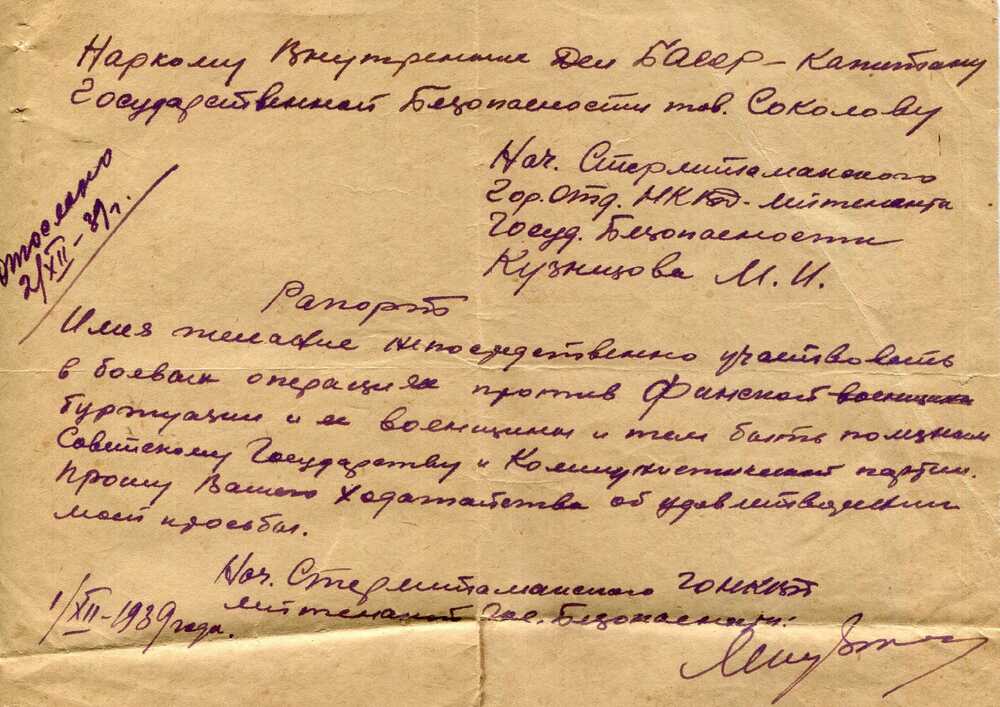 Наркому Внутренние Дел БАССР – Капитану
Государственной Безопасности тов. Соколову
Нач. Стерлитамакского
Гор. Отд. НКВД – лейтенанта
Госуд. Безопасности
Кузницова М. И.
Отослано
2/XII – 39 г.
Рапорт
Имея желание непосредственно участвовать
в боевых операциях против Финской военщины
буржуации и ее военщины и тем быть полезным
Советскому Государству и Коммунистической партии.
Прошу Вашего ходатайства об удовлитворении
моей просьбы.
Нач. Стерлитамакского ГОНКВД
лейтенант Гос. Безопасности:
1/XII – 1939 года.